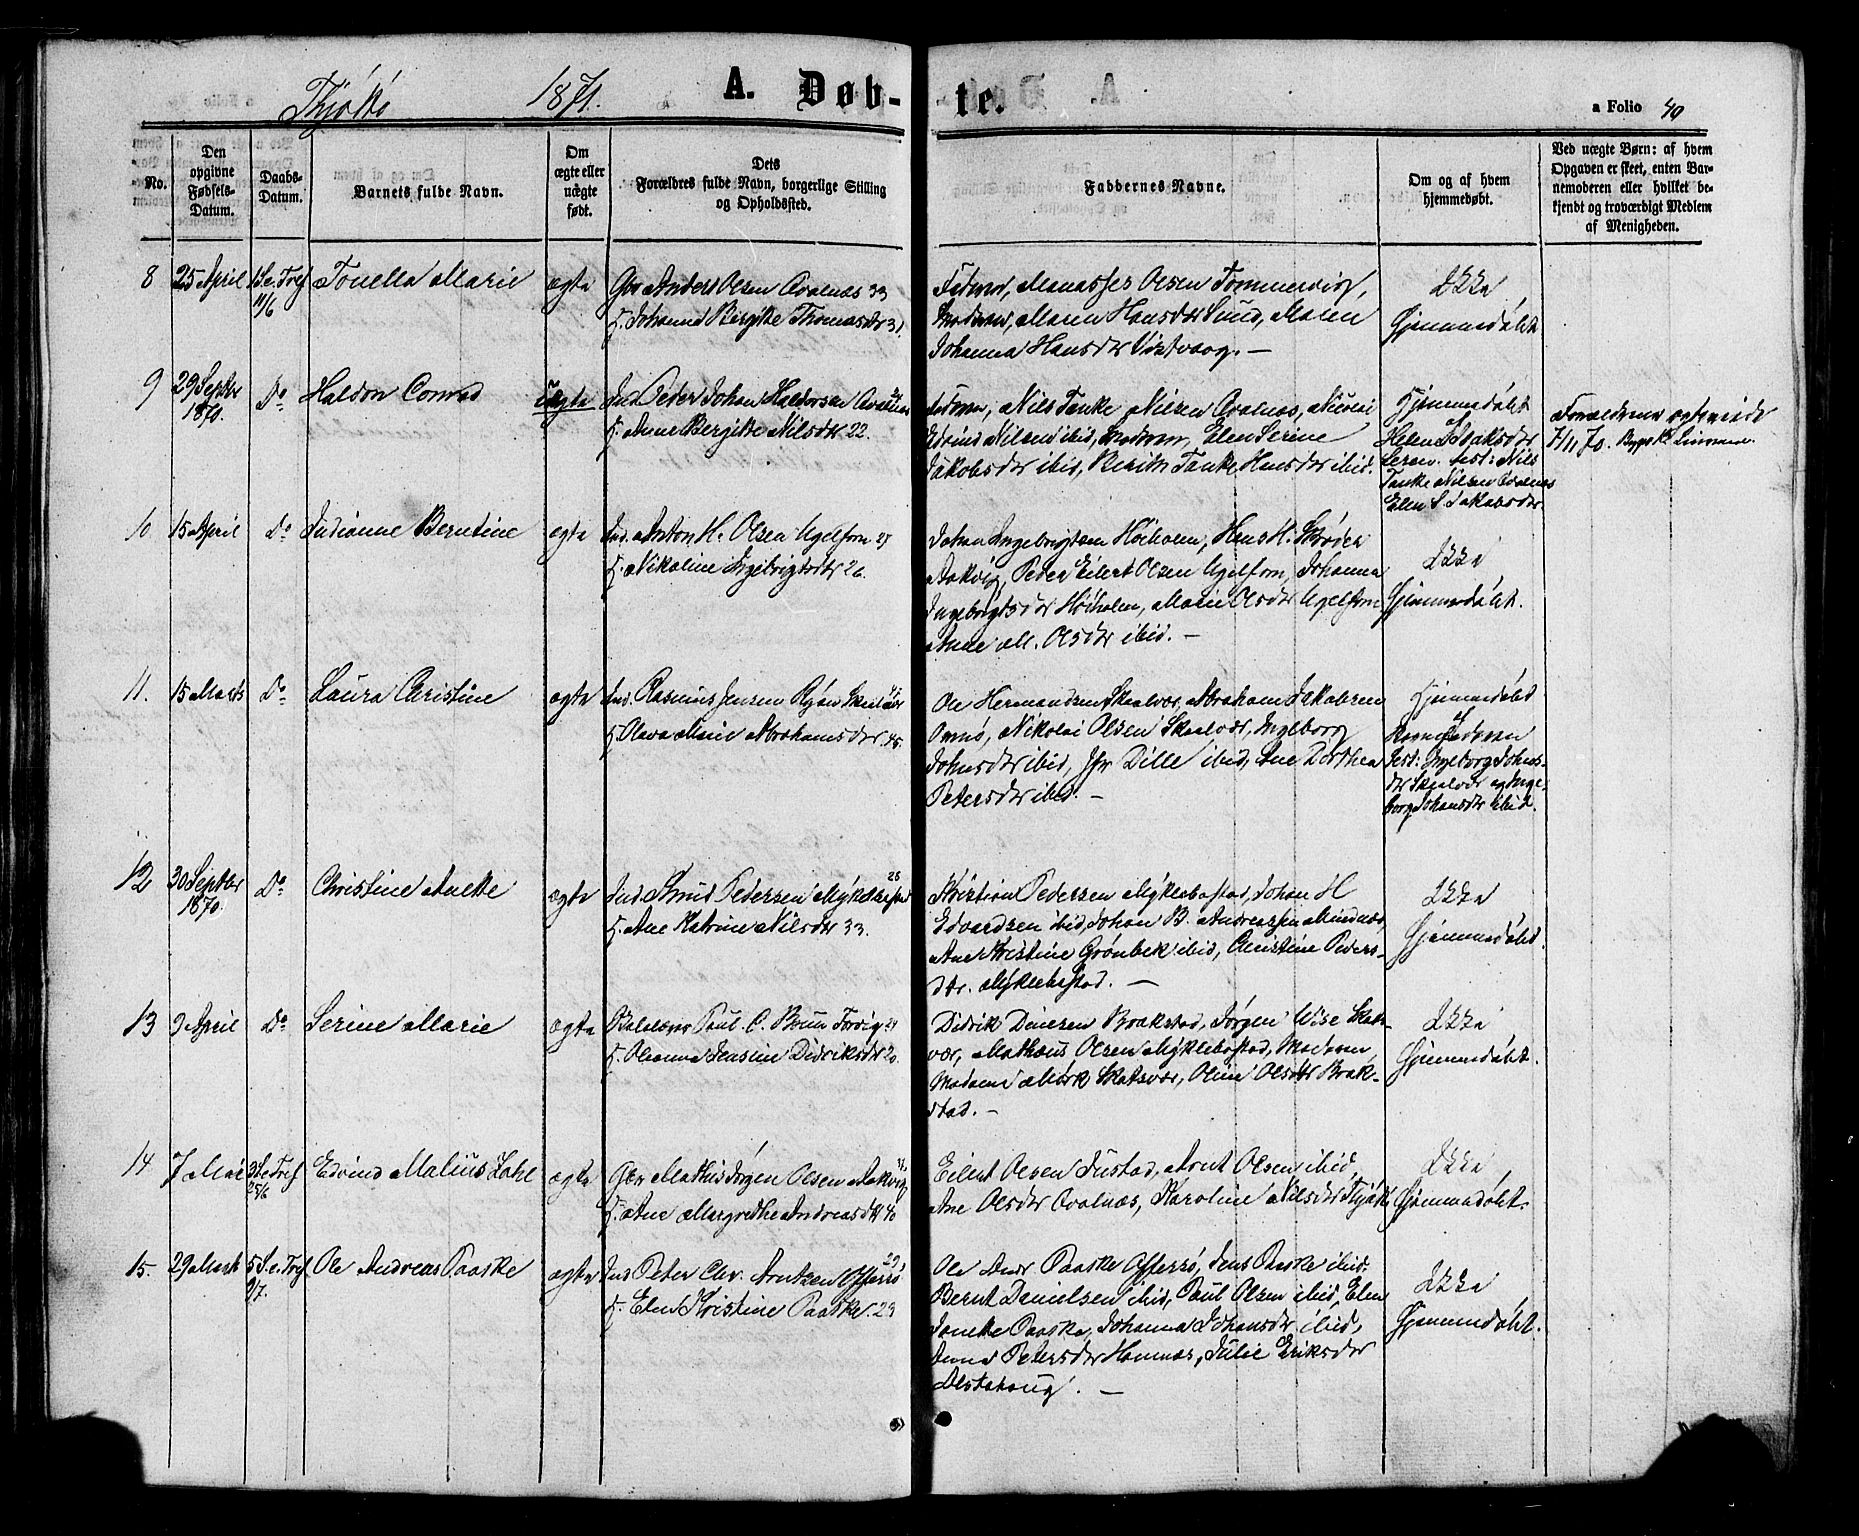 Thjøttø 1871. A. Døb- te. a Folio 40
No.
Den opgivne Fødsels-Datum.
Daabs-Datum.
Barnets fulde Navn.
Om ægte eller uægte født.
Dets Forældres fulde Navn, borgerlige Stilling og Opholdssted.
Faddernes Navne.
Om og af hvem hjemmedøbt.
Ved uægte Børn: af hvem Opgaven er skeet, enten Barnemoderen eller hvilket bekjendt og troværdigt Medlem af Menigheden.
8 25 April 1 S.e.Tref 11/6 Tonella Marie ægte Gbr Anders Olsen Qvalnæs 33
K. Johanna Bergitte Thomasdtr 31.
Faderen, Manasses Olsen Tømmervig,
Moderen, Maren Hansdtr Sund, Maren
Johanna Hansdtr Vistvaag. —
Ikke
Hjemmedøbt
9 29 Septbr 1870. Do Haldon Conrad uægte Ind Peder Johan Haldorsen Qvalnæs
K. Ane Bergitte Nilsdtr 22.
Faderen, Nils Tanke Nilsen Qvalnæs, Nicolai
Edvind Nilsen ibid, Moderen, Elen Serine
Jakobsdtr ibid, Berith Tanke Hansdtr ibid.
Hjemmedøbt
af
Helen Isaksdtr
test: Nils
Tanke Nilsen Qvalnæs
Elen S. Jakobsdtr.
Forældrene
7/11 70.
10 15 April Do Judianne Berntine ægte Ind. Anton H. Olsen Ugelfom 27
K. Nikoline Ingebrigtsdtr 26.
Johan Ingebrigtsen Høiholm, Hans H. Skrøder
Aakvig, Peder Eilert Olsen Ugelfom, Johanna
Ingebrigtsdtr Høiholm, Marie Olsdtr Ugelfom
Anne M. Olsdtr ibid. —
Ikke
Hjemmedøbt.
11. 15 Marts Do Laura Christine ægte Ind. Rasmus Jensen
K. Olava Marie Abrahamsdtr 45.
Ole Hermandsen Skaalvær, Abraham Jakobsen
Omnø, Nikolai Olsen Skaalvær, Ingeborg
Johnsdtr ibid, Jfr Dille ibid, Ane Dorthea
Petersdtr ibid. —
Hjemmedøbt
af
test: Ingeborg Johns-
dtr Skaalvær og Inge-
borg Johansdtr ibid.
12 30 Septbr 1870. Do Christine Anette ægte Ind Knud Pedersen Myklebostad 28
K. Ane Katrine Nilsdtr 33.
Kristian Pedersen Myklebostad, Johan H
Edvardsen ibid, Johan B. Andreassen Mindnæs,
Ane Kristine Grønbek ibid, Christine Peders-
dtr. Myklebostad. —
Ikke
Hjemmedøbt.
13 9 April Do Serine Marie ægte Paul C. Bruun Forvig 24
K. Oleanna Jensine Didriksdtr 20.
Didrik Dinesen Brakstad, Jørgen Wise Skots-
vær, Mathæus Olsen Myklebostad, Moderen,
Madame Mørk Skotsvær, Oline Olsdtr Brak-
stad. —
Ikke
Hjemmedøbt.
14 7 Mai 3 S.e.Tref 25/6 Edvind Malius Zahl ægte Gbr Mathis Jørgen Olsen Aakvig
K. Ane Margrethe Andreasdtr 40
Eilert Olsen Tustad, Arnt Olsen ibid,
Ane Olsdtr Qvalnæs, Karoline Nilsdtr Thjøtt
Ikke
Hjemmedøbt.
15. 29 Marts 5 S.e.Tref 9/7. Ole Andreas Paaske ægte Ind Peter Chr. Arntzen Offersø 29
K. Elen Kristine Paaske. 23
Ole Andr Paaske Offersø, Jens Paaske ibid.
Bernt Danielsen ibid, Paul Olsen ibid, Elen
Janette Paaske, Johanna Johansdtr ibid,
Anna Petersdtr Hamnæs, Julie Eriksdtr
Alstahoug. —
Ikke
Hjemmedøbt.